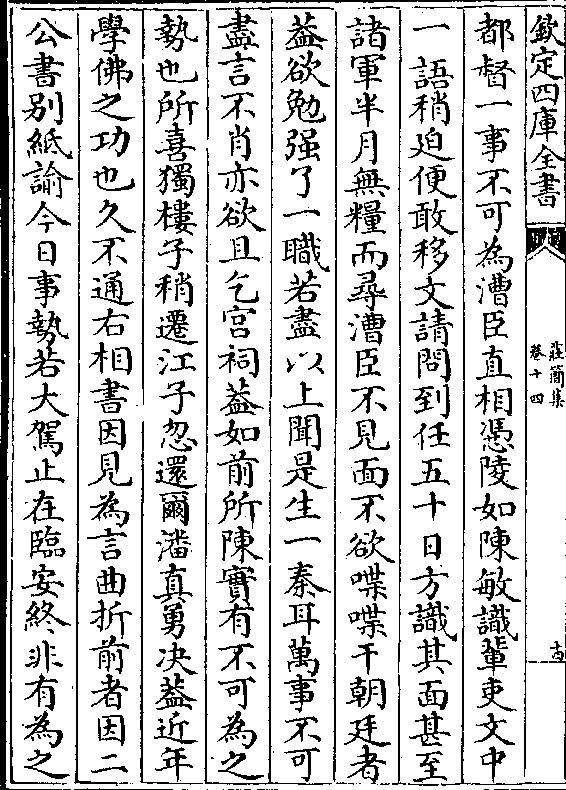 欽定四庫全書
莊簡集
卷十四
十四
都督一事不可為漕臣直相憑陵如陳敏識輩吏文中
一語稍廹便敢移文請問到任五十日方識其面甚至
諸軍半月無糧而尋漕臣不見面不欲喋喋干朝廷者
葢欲勉强了一職若盡以上聞是生一秦耳萬事不可
盡言不肖亦欲且乞宫祠葢如前所陳實有不可為之
勢也所喜獨樓子稍遷江子忽還爾潘真勇决葢近年
學佛之功也久不通右相書因見為言曲折前者因二
公書别紙諭今日事勢若大駕止在臨安終非有為之